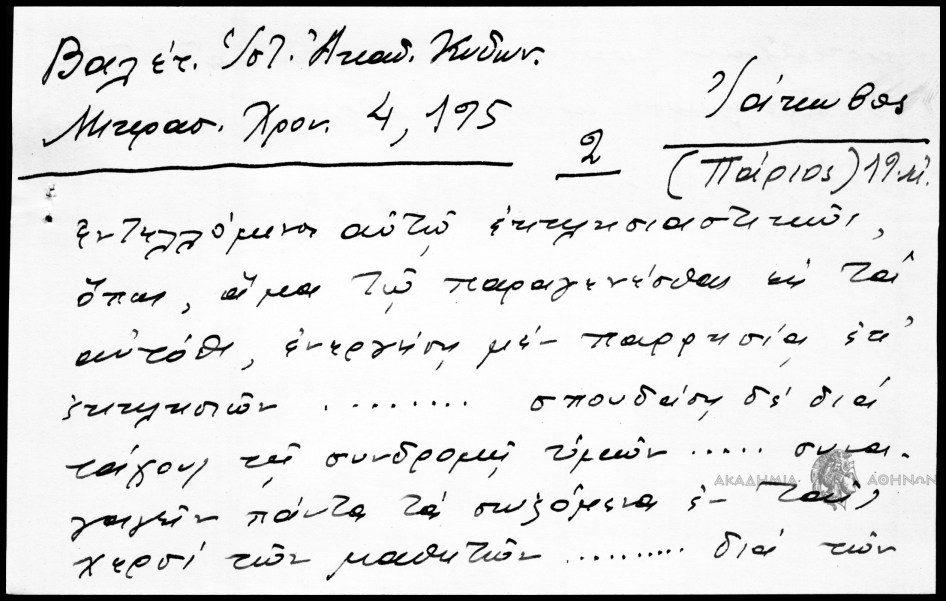 Βαλέτ. Ἱστ. Ἀκαδ. Κυδων.
Μικρασ. Χρον. 4, 195
2
Ἰάκωβος
(Πάριος) 19. αἰ.
ἐντελλόμενοι αὐτῷ ἐκκλησιαστικῶς,
ὅπως, ἅμα τῷ παραγενέσθαι εἰς τὰ
αὐτόθι, ἐνεργήσῃ μὲν παρρησίᾳ ἐκ
ἐκκλησιῶν ......... σπουδάσῃ δὲ διὰ
τάχους τῆς συνδρομῆς ὑμῶν ..... συνα-
γαγεῖν πάντα τὰ σωζόμενα ἐν ταῖς
χερσὶ τῶν μαθητῶν ......... διὰ τῶν
ΑΚΑΔΗΜΙΑ ΑΘΗΝΩΝ